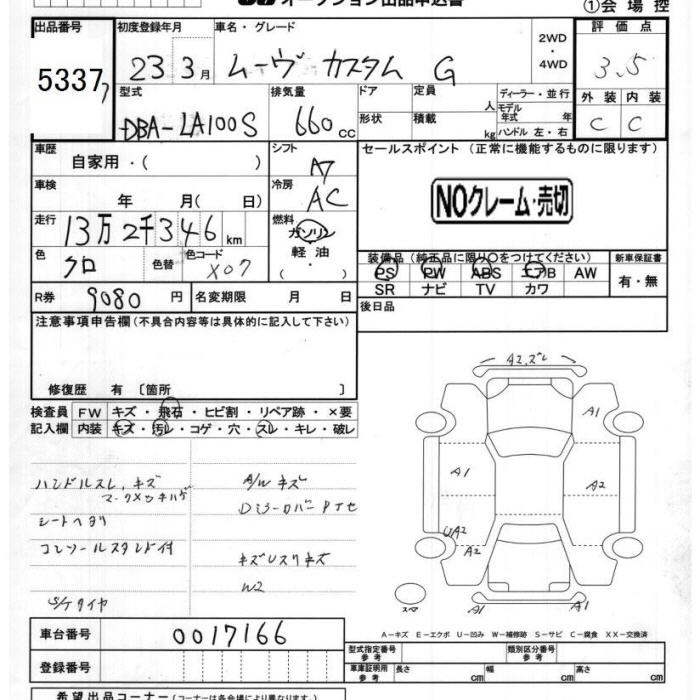 オークション出品申込書
①会場控
出品番号
5337
初度登録年月
23 3月
車名・グレード
ムーヴ カスタム G
2WD
・
4WD
評価点
3.5
外装 内装
C C
型式
DBA-LA100S
排気量
660 cc
ドア
形状
定員 人
積載 kg
ディーラー・並行
モデル年式 年
ハンドル 左・右
車歴
自家用・( )
シフト
A7
セールスポイント (正常に機能するものに限ります)
NOクレーム・売切
車検
年 月( 日)
冷房
AC
走行
13万2千346 km
燃料
ガソリン
軽油
・
色
クロ
色替
色コード
X07
装備品 (純正品に限り○をつけてください)
新車保証書
PS PW ABS エアB AW
SR ナビ TV カワ
有・無
R券
9080 円
名変期限 月 日
後日品
注意事項申告欄 (不具合内容等は具体的に記入して下さい)
修復歴 有 〔箇所 〕
検査員
記入欄
FW キズ・飛石・ヒビ割・リペア跡・×要
内装 キズ・汚レ・コゲ・穴・スレ・キレ・破レ
ハンドルスレ、キズ
マークメッキハゲ
シートヘタリ
コンソールスタンド付
S/Kタイヤ
A/W キズ
Dミラーカバー
キズUスリキズ
W2
A2,スレ
A1
A1
A2
UA2
A2
スペ
A1
A1
A-キズ E-エクボ U-凹み W-補修跡 S-サビ C-腐食 XX-交換済
車台番号
0017166
登録番号
型式指定番号
参考
類別区分番号
参考
車庫証明用
参考
長さ cm
幅 cm
高さ cm
希望出品コーナー (コーナーは各会場により異なります)